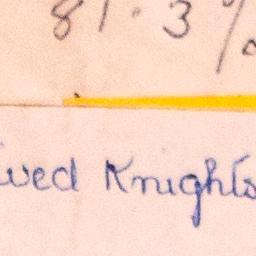 81.3%
ived Knights